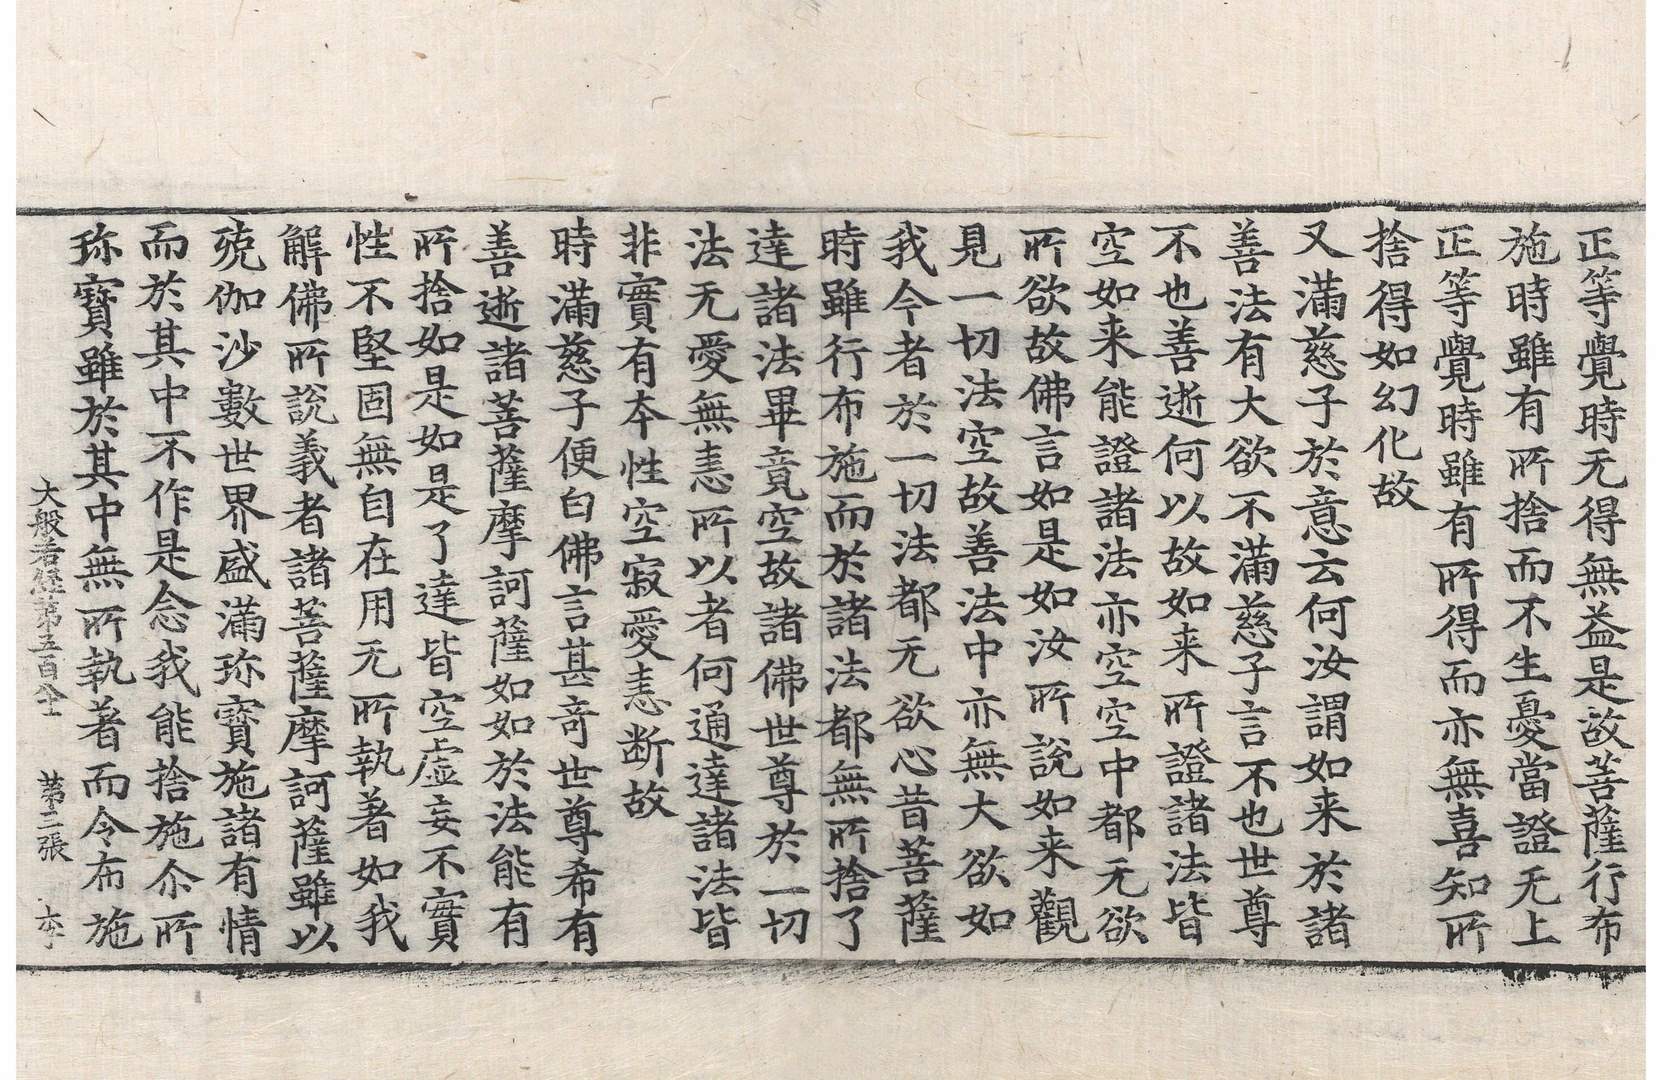 正等覺時无得無益是故菩薩行布
施時雖有所捨而不生憂當證无上
正等覺時雖有所得而亦無喜知所
捨得如幻化故
又滿慈子於意云何汝謂如来於諸
善法有大欲不滿慈子言不也世尊
不也善逝何以故如来所證諸法皆
空如来能證諸法亦空空中都无欲
所欲故佛言如是如汝所說如来觀
見一切法空故善法中亦無大欲如
我今者於一切法都无欲心昔菩薩
時雖行布施而於諸法都無所捨了
達諸法畢竟空故諸佛世尊於一切
法无愛無恚所以者何通達諸法皆
非實有本性空寂愛恚断故
時滿慈子便白佛言甚竒世尊希有
善逝諸菩薩摩訶薩如如於法能有
所捨如是如是了達皆空虛妄不實
性不堅固無自在用无所執著如我
解佛所說義者諸菩薩摩訶薩雖以
殑伽沙數世界盛滿珎寳施諸有情
而於其中不作是念我能捨施尒所
珎寳雖於其中無所執著而令布施
大般若經第五百八十 第二張 李